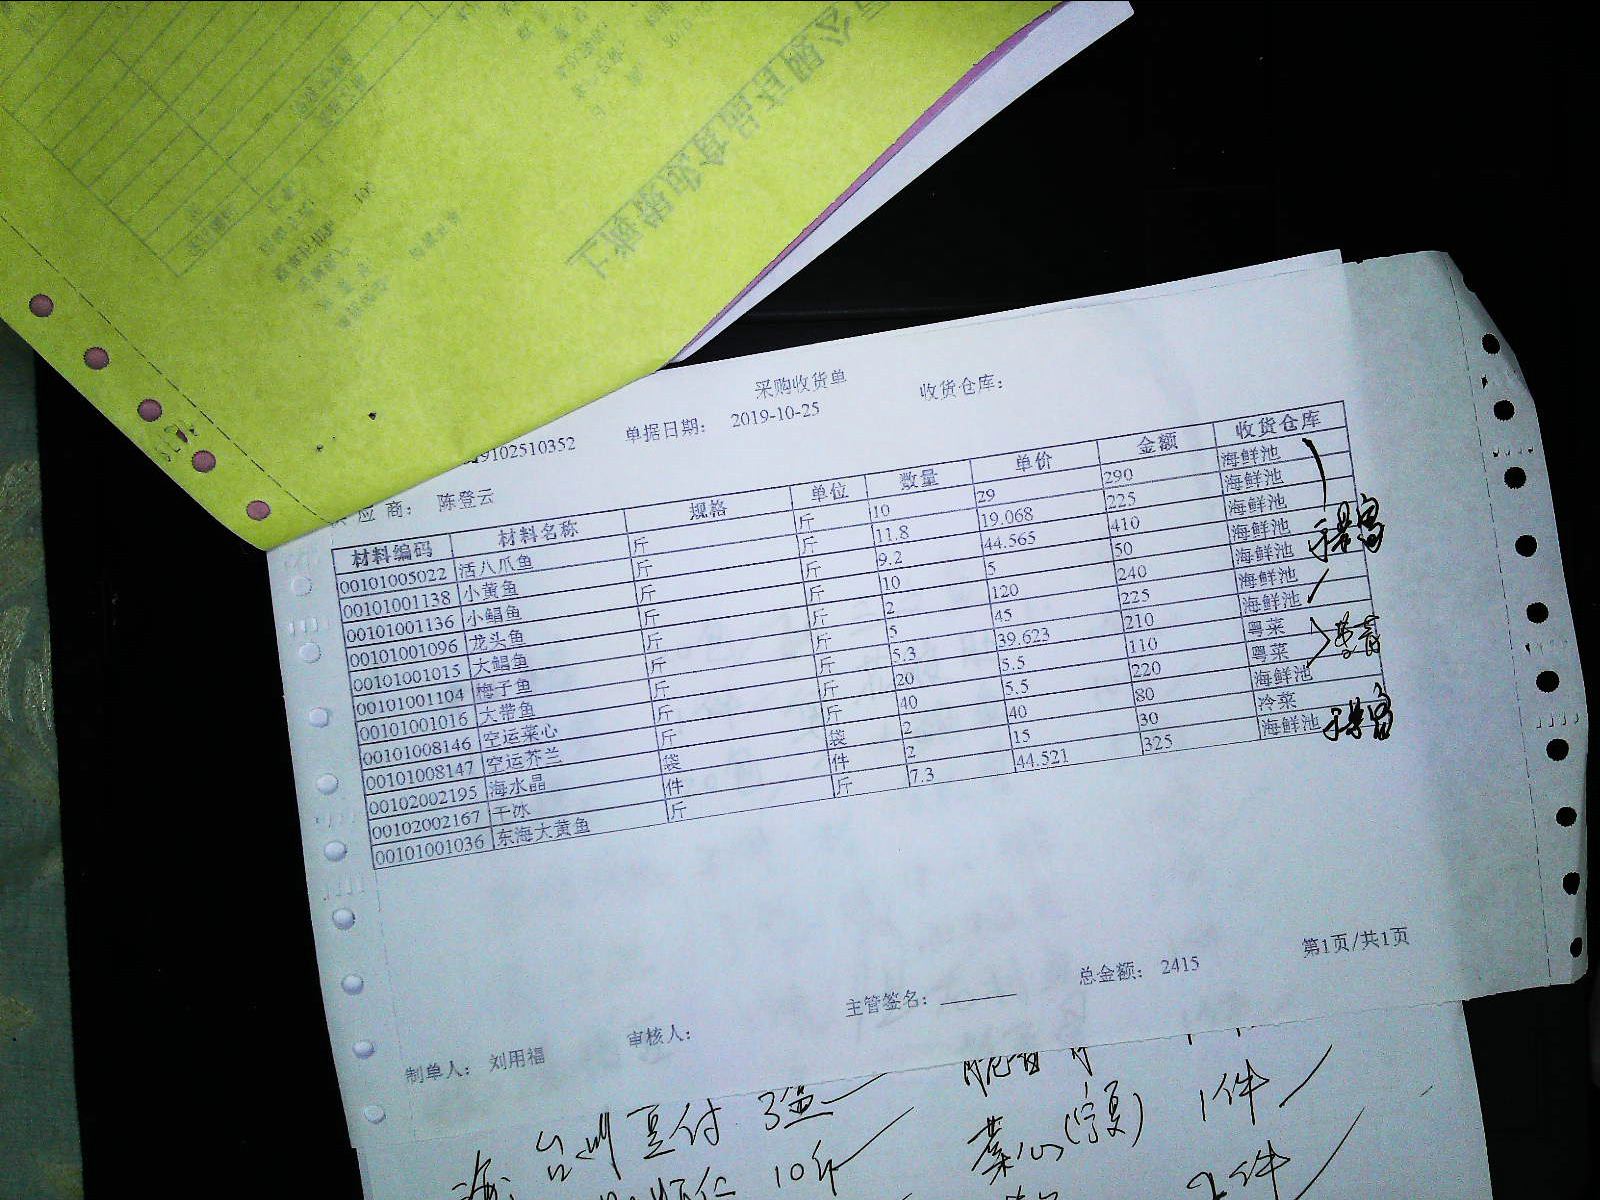 采购收货单
9102510352 单据日期： 2019-10-25 收货仓库：
应商： 陈登云
材料编码 材料名称 规格 单位 数量 单价 金额 收货仓库
00101005022 活八爪鱼 斤 斤 10 29 290 海鲜池
00101001138 小黄鱼 斤 斤 11.8 19.068 225 海鲜池
00101001136 小鲳鱼 斤 斤 9.2 44.565 410 海鲜池
00101001096 龙头鱼 斤 斤 10 5 50 海鲜池
00101001015 大鲳鱼 斤 斤 2 120 240 海鲜池
00101001104 梅子鱼 斤 斤 5 45 225 海鲜池
00101001016 大带鱼 斤 斤 5.3 39.623 210 海鲜池
00101008146 空运菜心 斤 斤 20 5.5 110 粤菜
00101008147 空运芥兰 斤 斤 40 5.5 220 粤菜
00102002195 海水晶 袋 袋 2 40 80 海鲜池
00102002167 干冰 件 件 2 15 30 冷菜
00101001036 东海大黄鱼 斤 斤 7.3 44.521 325 海鲜池
总金额： 2415 第1页/共1页
制单人： 刘用福 审核人： 主管签名：
台州豆付 3盒
菜心(宁夏) 1件
10斤
2件